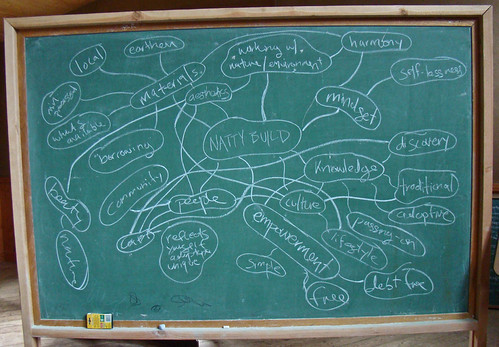 earthen
local
materials.
min.
processed
what is
available
aesthetics
working w/
nature/environment
harmony
self-lessness
mindset
NATTY BUILD
"borrowing"
discovery
knowledge
traditional
adaptive
passing-on
lifestyle
community
people
culture
beauty
nature
reflects
adaptive
unique
empowerment
simple
free
debt free